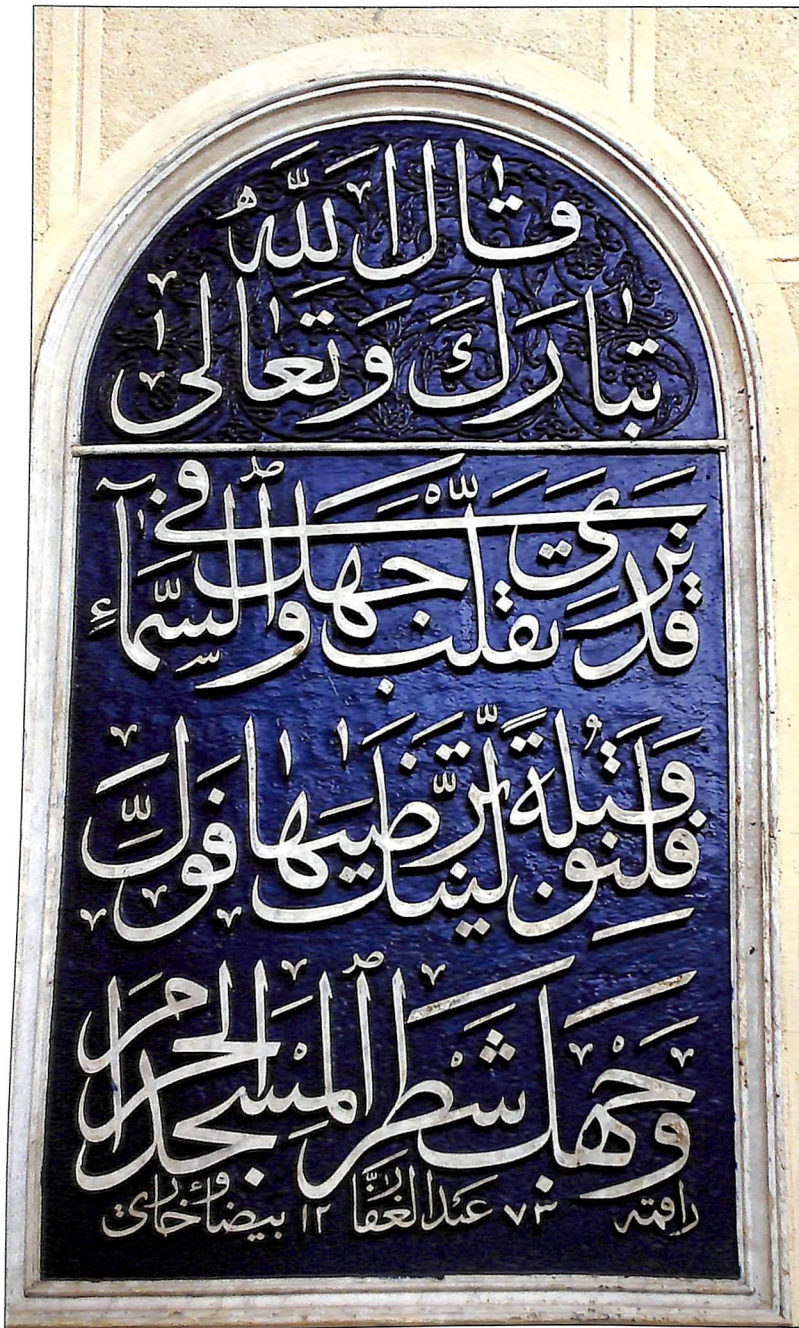 قَالَ اللّٰهُ
تَبَارَكَ وَتَعَالٰى
قَدْ نَرٰى تَقَلُّبَ وَجْهِكَ فِي السَّمَآءِ
فَلَنُوَلِّيَنَّكَ قِبْلَةً تَرْضٰىهَا فَوَلِّ
وَجْهَكَ شَطْرَ الْمَسْجِدِ الْحَرَامِ
راقمته ٧٣ عبدالغفار ١٢ بيضاوي